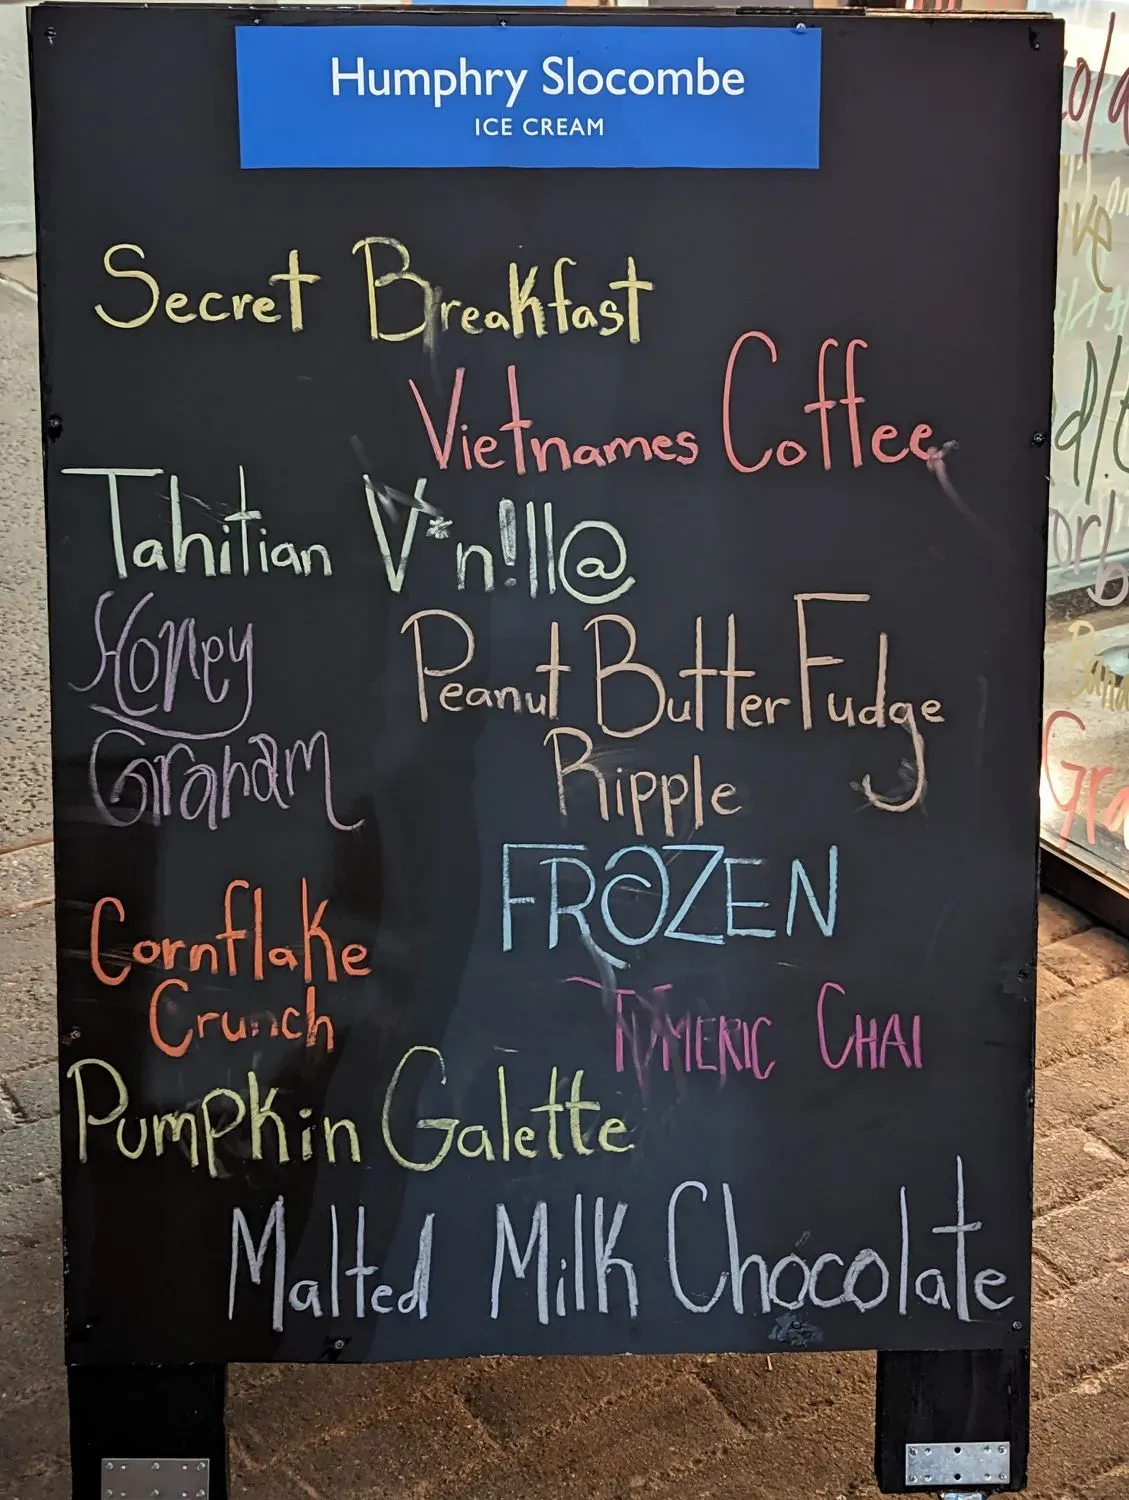 Humphry Slocombe
ICE CREAM
Secret Breakfast
Vietnames Coffee
Tahitian V*n!ll@
Honey
Graham
Peanut Butter Fudge
Ripple
FROZEN
TUMERIC CHAI
Cornflake
Crunch
Pumpkin Galette
Malted Milk Chocolate